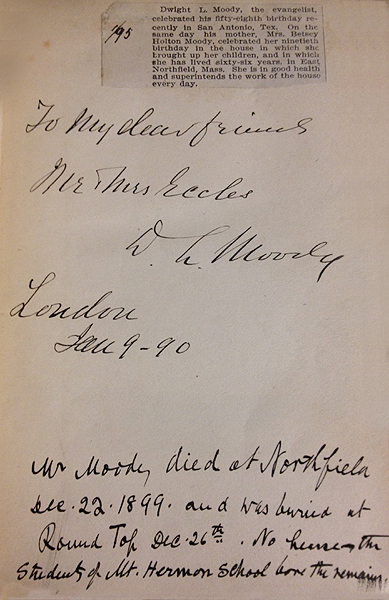 Dwight L. Moody, the evangelist,
celebrated his fifty-eighth birthday re-
cently in San Antonio, Tex. On the
same day his mother, Mrs. Betsey
Holton Moody, celebrated her ninetieth
birthday in the house in which she
brought up her children, and in which
she has lived sixty-six years, in East
Northfield, Mass. She is in good health
and superintends the work of the house
every day.
/95
To My dear friends
Mr & Mrs Eccles
D. L. Moody
London
Jan 9-90
Mr Moody died at Northfield
Dec. 22. 1899. and was buried at
Round Top Dec. 26th. No hearse - the
Students of Mt. Hermon School bore the remains.